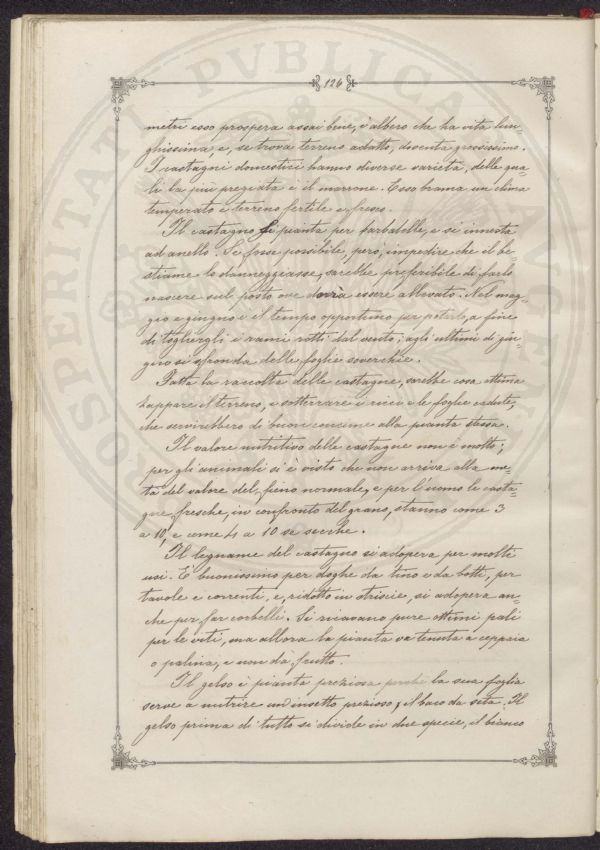 126
metri esso prospera assai bene, è albero che ha vita lun=
ghissima, e, se trova terreno adatto, diventa grossissimo.
I castagni domestici hanno diverse varietà, delle qua=
li la più pregiata è il marrone. Esso brama un clima
temperato e terreno fertile e fresco.
Il castagno si pianta per barbatelle, e si innesta
ad anello. Se fosse possibile, però, impedire che il be=
stiame lo danneggiasse, sarebbe preferibile di farlo
nascere sul posto ove dovrà essere allevato. Nel mag=
gio e giugno è il tempo opportuno per potarlo, a fine
di togliergli i rami rotti dal vento; agli ultimi di giu=
gno si sfronda delle foglie soverchie.
Fatta la raccolta delle castagne, sarebbe cosa ottima
zappare il terreno, e sotterrare i ricci e le foglie cadute,
che servirebbero di buon concime alla pianta stessa.
Il valore nutritivo delle castagne non è molto;
per gli animali si è visto che non arriva alla me=
tà del valore del fieno normale, e per l'uomo le casta=
gne fresche, in confronto del grano, stanno come 3
a 10, e come 4 a 10 se secche.
Il legname del castagno si adopera per molti
usi. È buonissimo per doghe da tino e da botti, per
tavole e correnti, e, ridotto in striscie, si adopera an=
che per far corbelli. Si ricavano pure ottimi pali
per le viti, ma allora la pianta va tenuta a ceppaia
o palina, e non dà frutto.
Il gelso è pianta preziosa perchè la sua foglia
serve a nutrire un insetto prezioso, il baco da seta. Il
gelso prima di tutto si divide in due specie, il bianco
PROSPERITATI PVBLICAE AVGENDAE